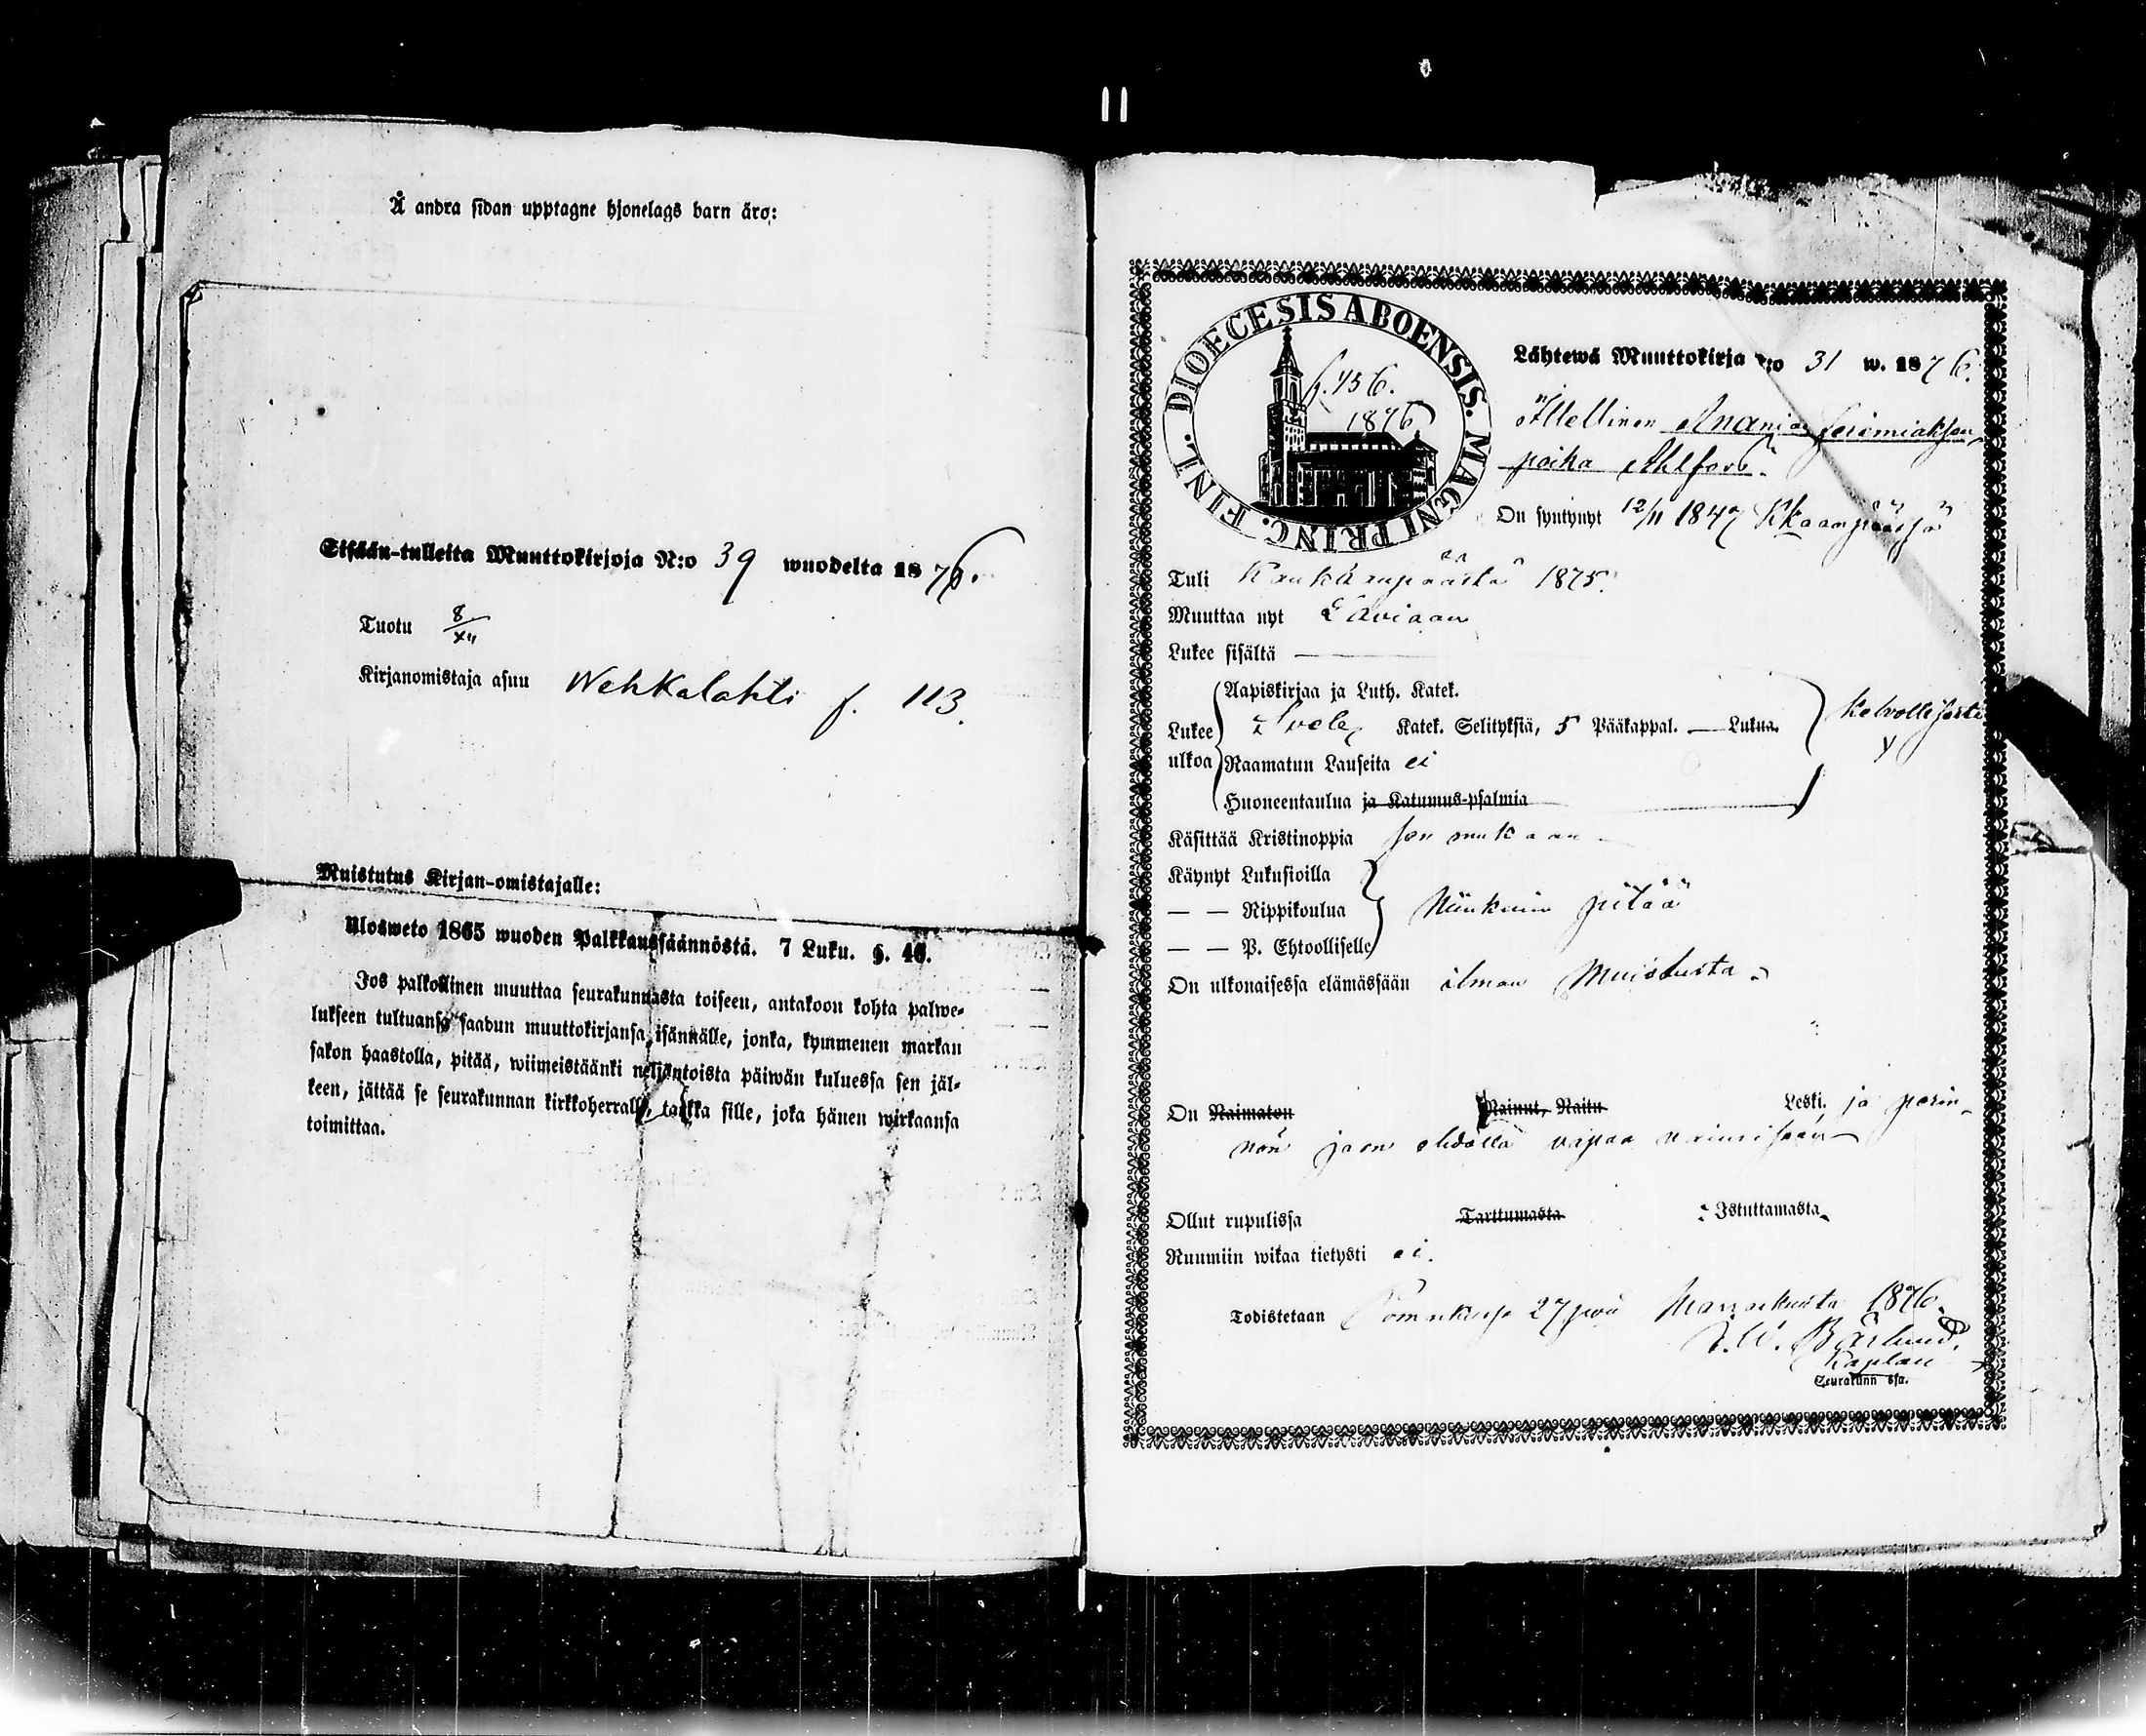 Å andra sidan upptagne hjonelags barn äro:
Sisään-tulleita Muuttokirjoja N:o 39 wuodelta 1876.
Tuotu 8/XII
Kirjanomistaja asuu Wehkalahti f. 113.
Muistutus Kirjan-omistajalle:
Ulosweto 1865 wuoden Palkkaussäännöstä. 7 Luku. §. 46.
Jos palkollinen muuttaa seurakunnasta toiseen, antakoon kohta palwe-
lukseen tultuansa saadun muuttokirjansa isännälle, jonka, kymmenen markan
sakon haastolla, pitää, wiimeistäänki neljäntoista päiwän kuluessa sen jäl-
keen, jättää se seurakunnan kirkkoherralle, taikka sille, joka hänen wirkaansa
toimittaa.
DIOECESIS ABOENSIS. MAGNI PRINC. FINL.
f. 456.
1876
Lähtewä Muuttokirja N:o 31 w. 1876.
Itellinen Ananias Jeremiakson
poika Ahlfors.
On syntynyt 12/11 1847 Kkaanpäässä
Tuli Kankaanpäästä 1875.
Muuttaa nyt Laviaan
Lukee sisältä —
Aapiskirjaa ja Luth. Katek.
Lukee Katek. Selityksiä, 5 Pääkappal. — Lukua. kelvollisesti
ulkoa Raamatun Lauseita ei
Huoneentaulua ja Katumus-psalmia
Käsittää Kristinoppia sen mukaan
Käynyt Lukusioilla
— — Rippikoulua Niinkuin pitää
— — P. Ehtoolliselle
On ulkonaisessa elämässään ilman Muistusta
On Naimaton Nainut, Naitu Leski. ja perin-
nön jaon ehdolla vapaa naimisaan
Ollut rupulissa Tarttumasta Istuttamasta
Ruumiin wikaa tietysti ei.
Todistetaan Pomarkussa 27 pnä Marraskuuta 1876.
Bärlund.
Kaplan
Seurakunn ssa.